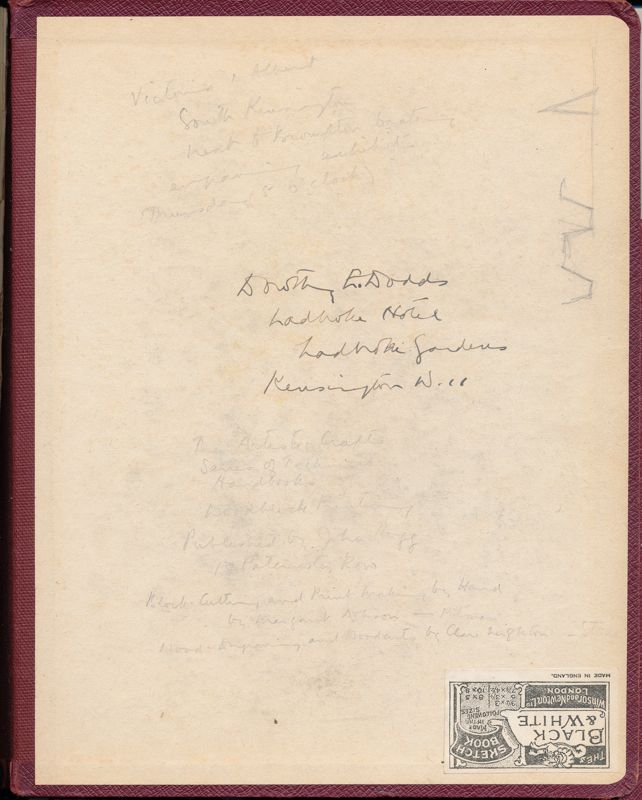 Victoria & Albert
South Kensington
next to Brompton Oratory
engraving exhibition
(Thursday 5 o'clock)
Dorothy E. Dodds
Ladbroke Hotel
Ladbroke Gardens
Kensington W. 11
Artistic Crafts
Series of Technical
Handbooks
Woodblock Printing
Published by John Hogg
Paternoster Row
Block Cutting and Print Making by Hand
by Margaret Dobson — Pitman
Wood-Engraving and Woodcuts by Clare Leighton
MADE IN ENGLAND.
THE
BLACK
& WHITE
SKETCH
BOOK
MADE
IN THE
FOLLOWING
SIZES
Winsor and Newton Ltd
LONDON